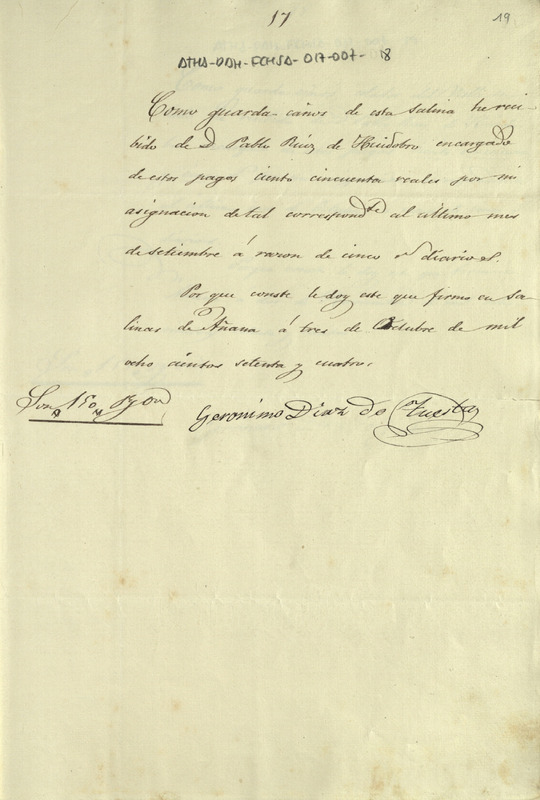 17
19
ATHA-DAH-FCHSA-017-007-18
Como guarda-caños de esta salina he reci-
bido de D. Pablo Ruiz de Huidobro encargado
de estos pagos ciento cincuenta reales por mi
asignacion de tal correspond.te al último mes
de setiembre á razon de cinco r.s diarios.
Por que conste le doy este que firmo en Sa-
linas de Añana á tres de Octubre de mil
ocho cientos setenta y cuatro.
Son 150
Geronimo Diaz de Tuesta